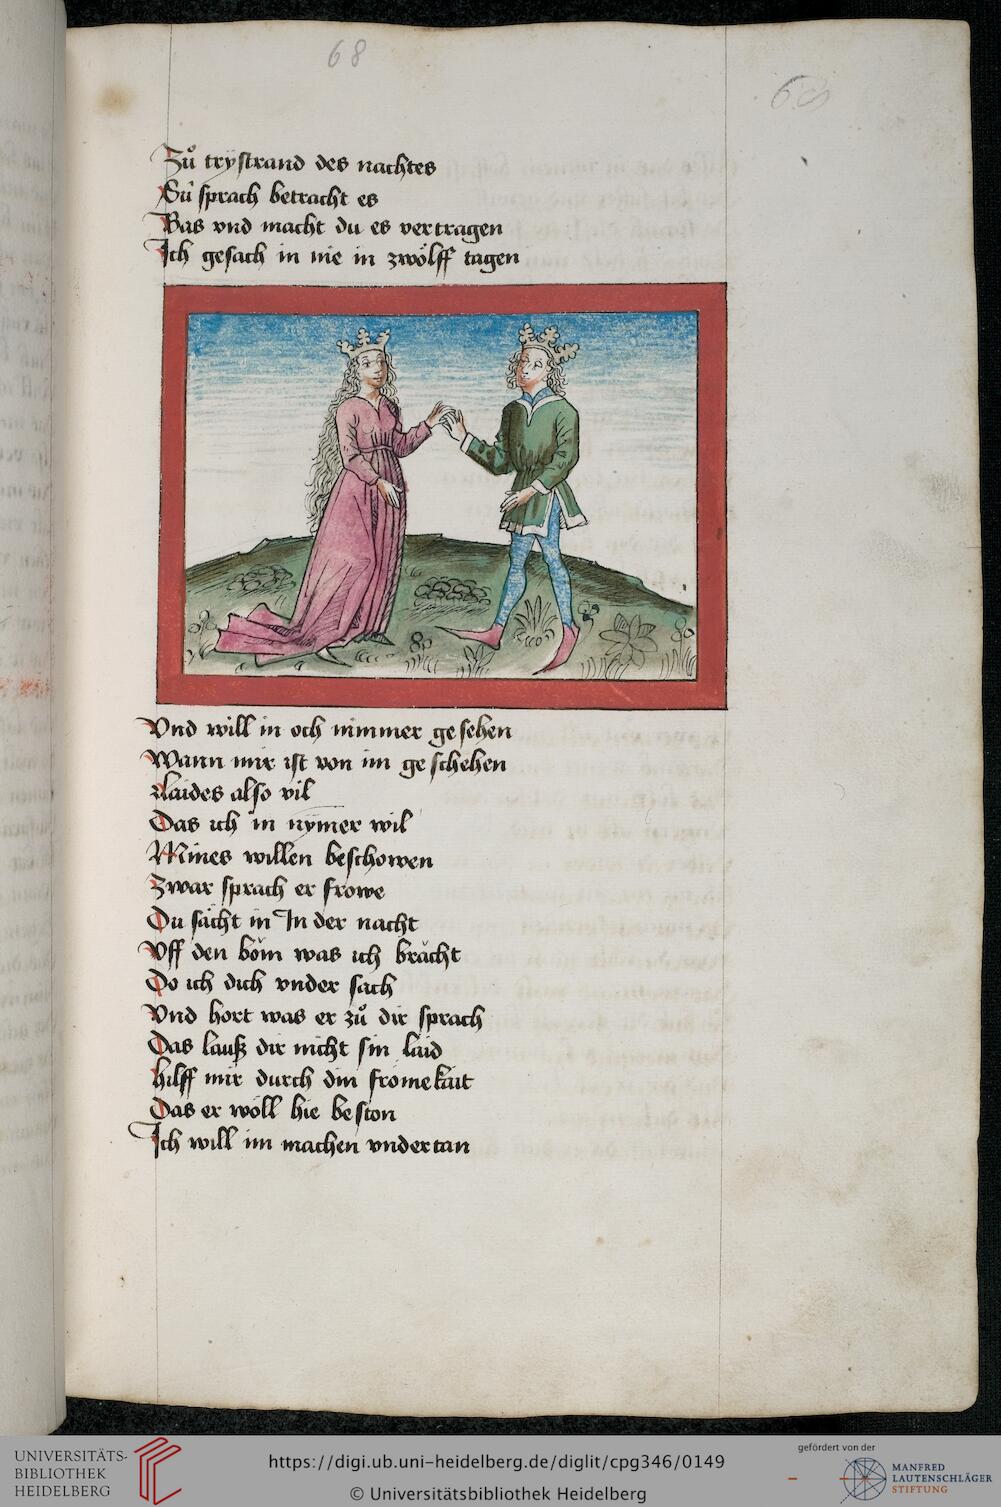 68
Zů trÿstrand des nachtes
Sü sprach betracht es
Bas vnd macht du es vertragen
Ich gesach in nie in zwölff tagen
Vnd will in och nimmer gesehen
Wann mir ist von im geschehen
Laides also vil
Das ich in nÿmer wil
Mines willen beschowen
Zwar sprach er frowe
Du sächt in In der nacht
Vff den böm was ich brächt
Do ich dich vnder sach
Vnd hort was er zů dir sprach
Das lauß dir nicht sin laid
hilff mir durch din fromekait
Das er wöll hie beston
Ich will im machen vndertan
UNIVERSITÄTS-
BIBLIOTHEK
HEIDELBERG
https://digi.ub.uni-heidelberg.de/diglit/cpg346/0149
© Universitätsbibliothek Heidelberg
gefördert von der
MANFRED
LAUTENSCHLÄGER
STIFTUNG